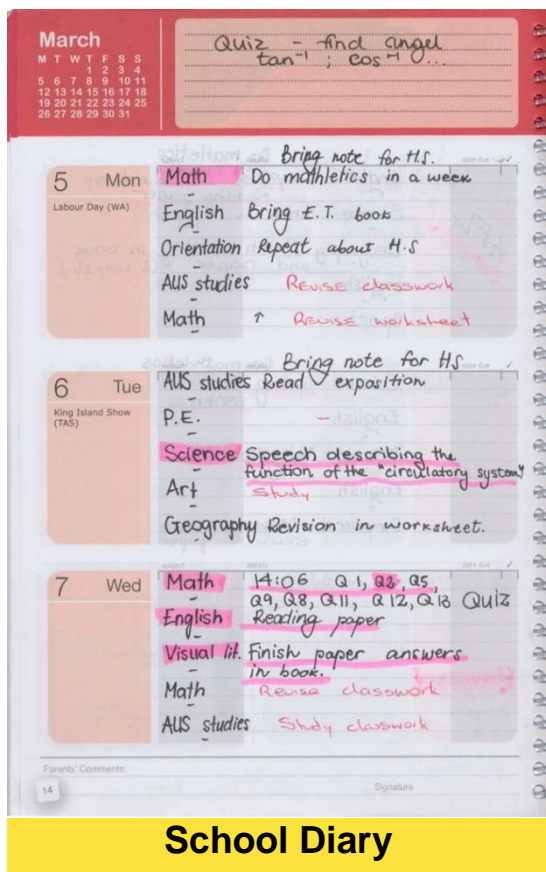 March
M T W T F S S
1 2 3 4
5 6 7 8 9 10 11
12 13 14 15 16 17 18
19 20 21 22 23 24 25
26 27 28 29 30 31
Quiz - find angel
tan⁻¹ ; cos⁻¹ ...
Bring note for H.S.
5 Mon
Labour Day (WA)
Math Do mathletics in a week
English Bring E.T. book
Orientation Repeat about H.S
AUS studies Revise classwork
Math ↑ Revise worksheet
Bring note for HS
6 Tue
King Island Show
(TAS)
AUS studies Read exposition
P.E. -
Science Speech describing the
function of the "circulatory system"
Art Study
Geography Revision in worksheet.
subject details date due ✓
7 Wed
Math 14:06 Q1, Q2, Q5,
Q9, Q8, Q11, Q12, Q13 QUIZ
English Reading paper
Visual lit. Finish paper answers
in book.
Math Revise classwork
AUS studies Study classwork
Parents' Comments:
14 Signature
School Diary